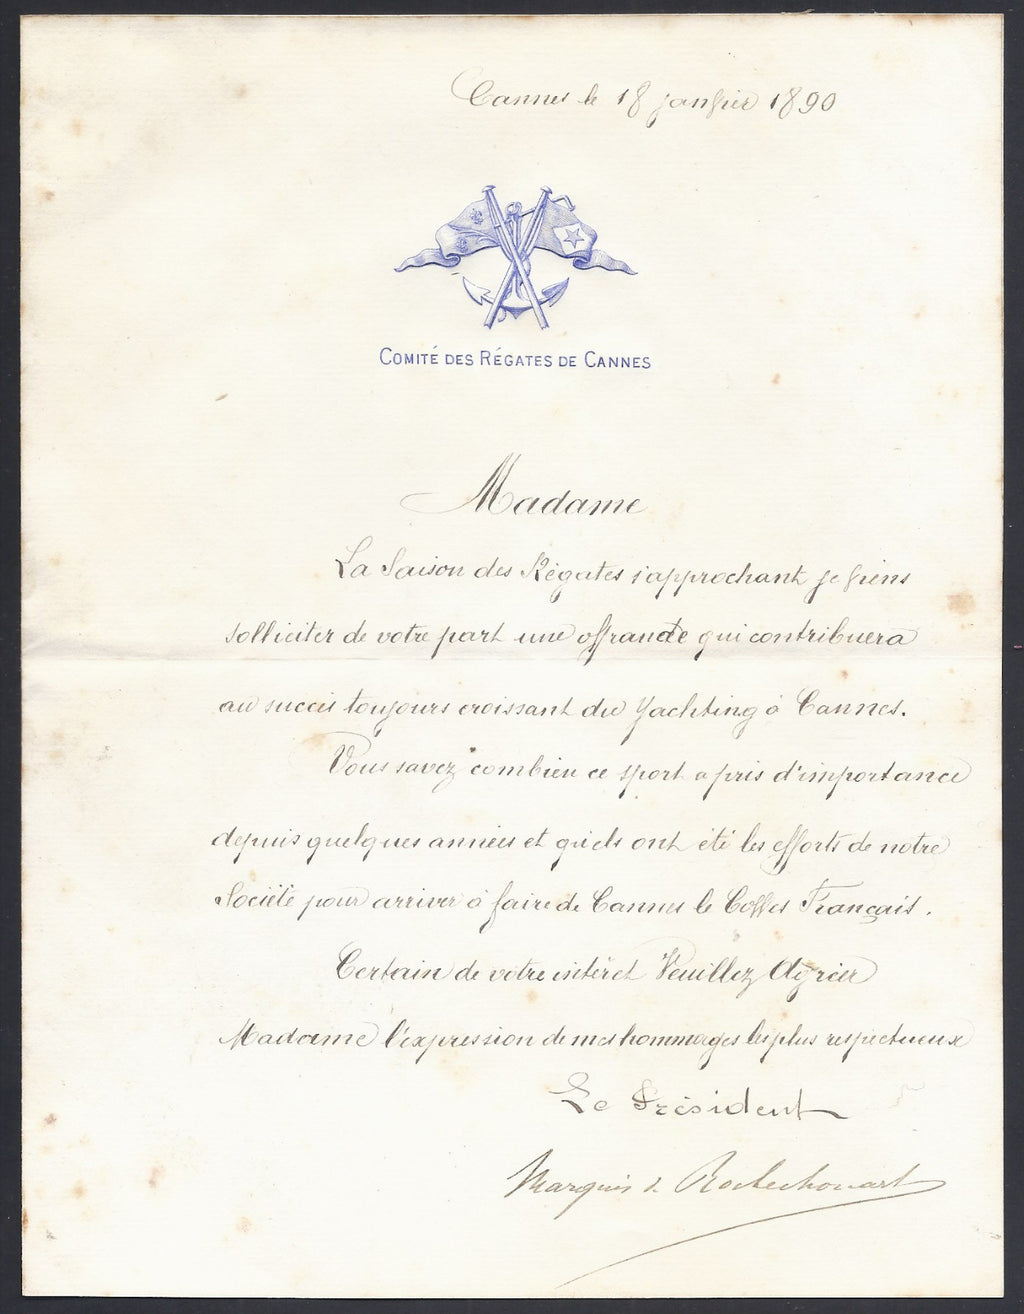 Cannes le 18 janvier 1890
COMITÉ DES RÉGATES DE CANNES
Madame
La Saison des Régates s'approchant je viens
solliciter de votre part une offrande qui contribuera
au succès toujours croissant du Yachting à Cannes.
Vous savez combien ce sport a pris d'importance
depuis quelques années et quels ont été les efforts de notre
Société pour arriver à faire de Cannes le Cowes Français.
Certain de votre intérêt Veuillez Agréer
Madame l'expression de mes hommages les plus respectueux
Le Président
Marquis de Rochechouart